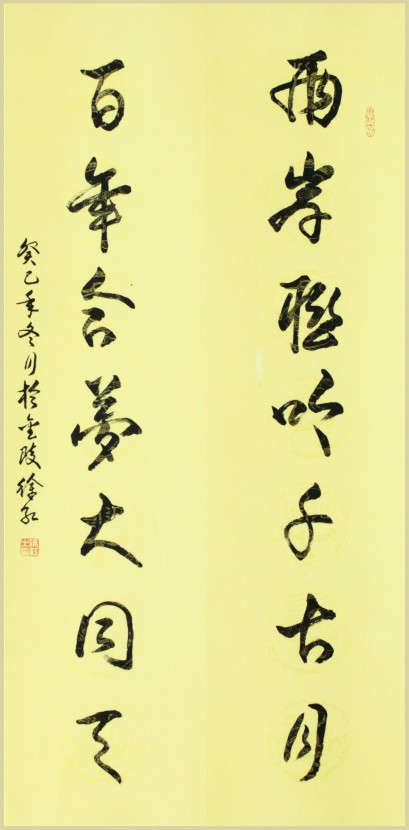 兩岸聯吟千古月
百年合夢大同天
癸巳年冬月於金陵徐紅